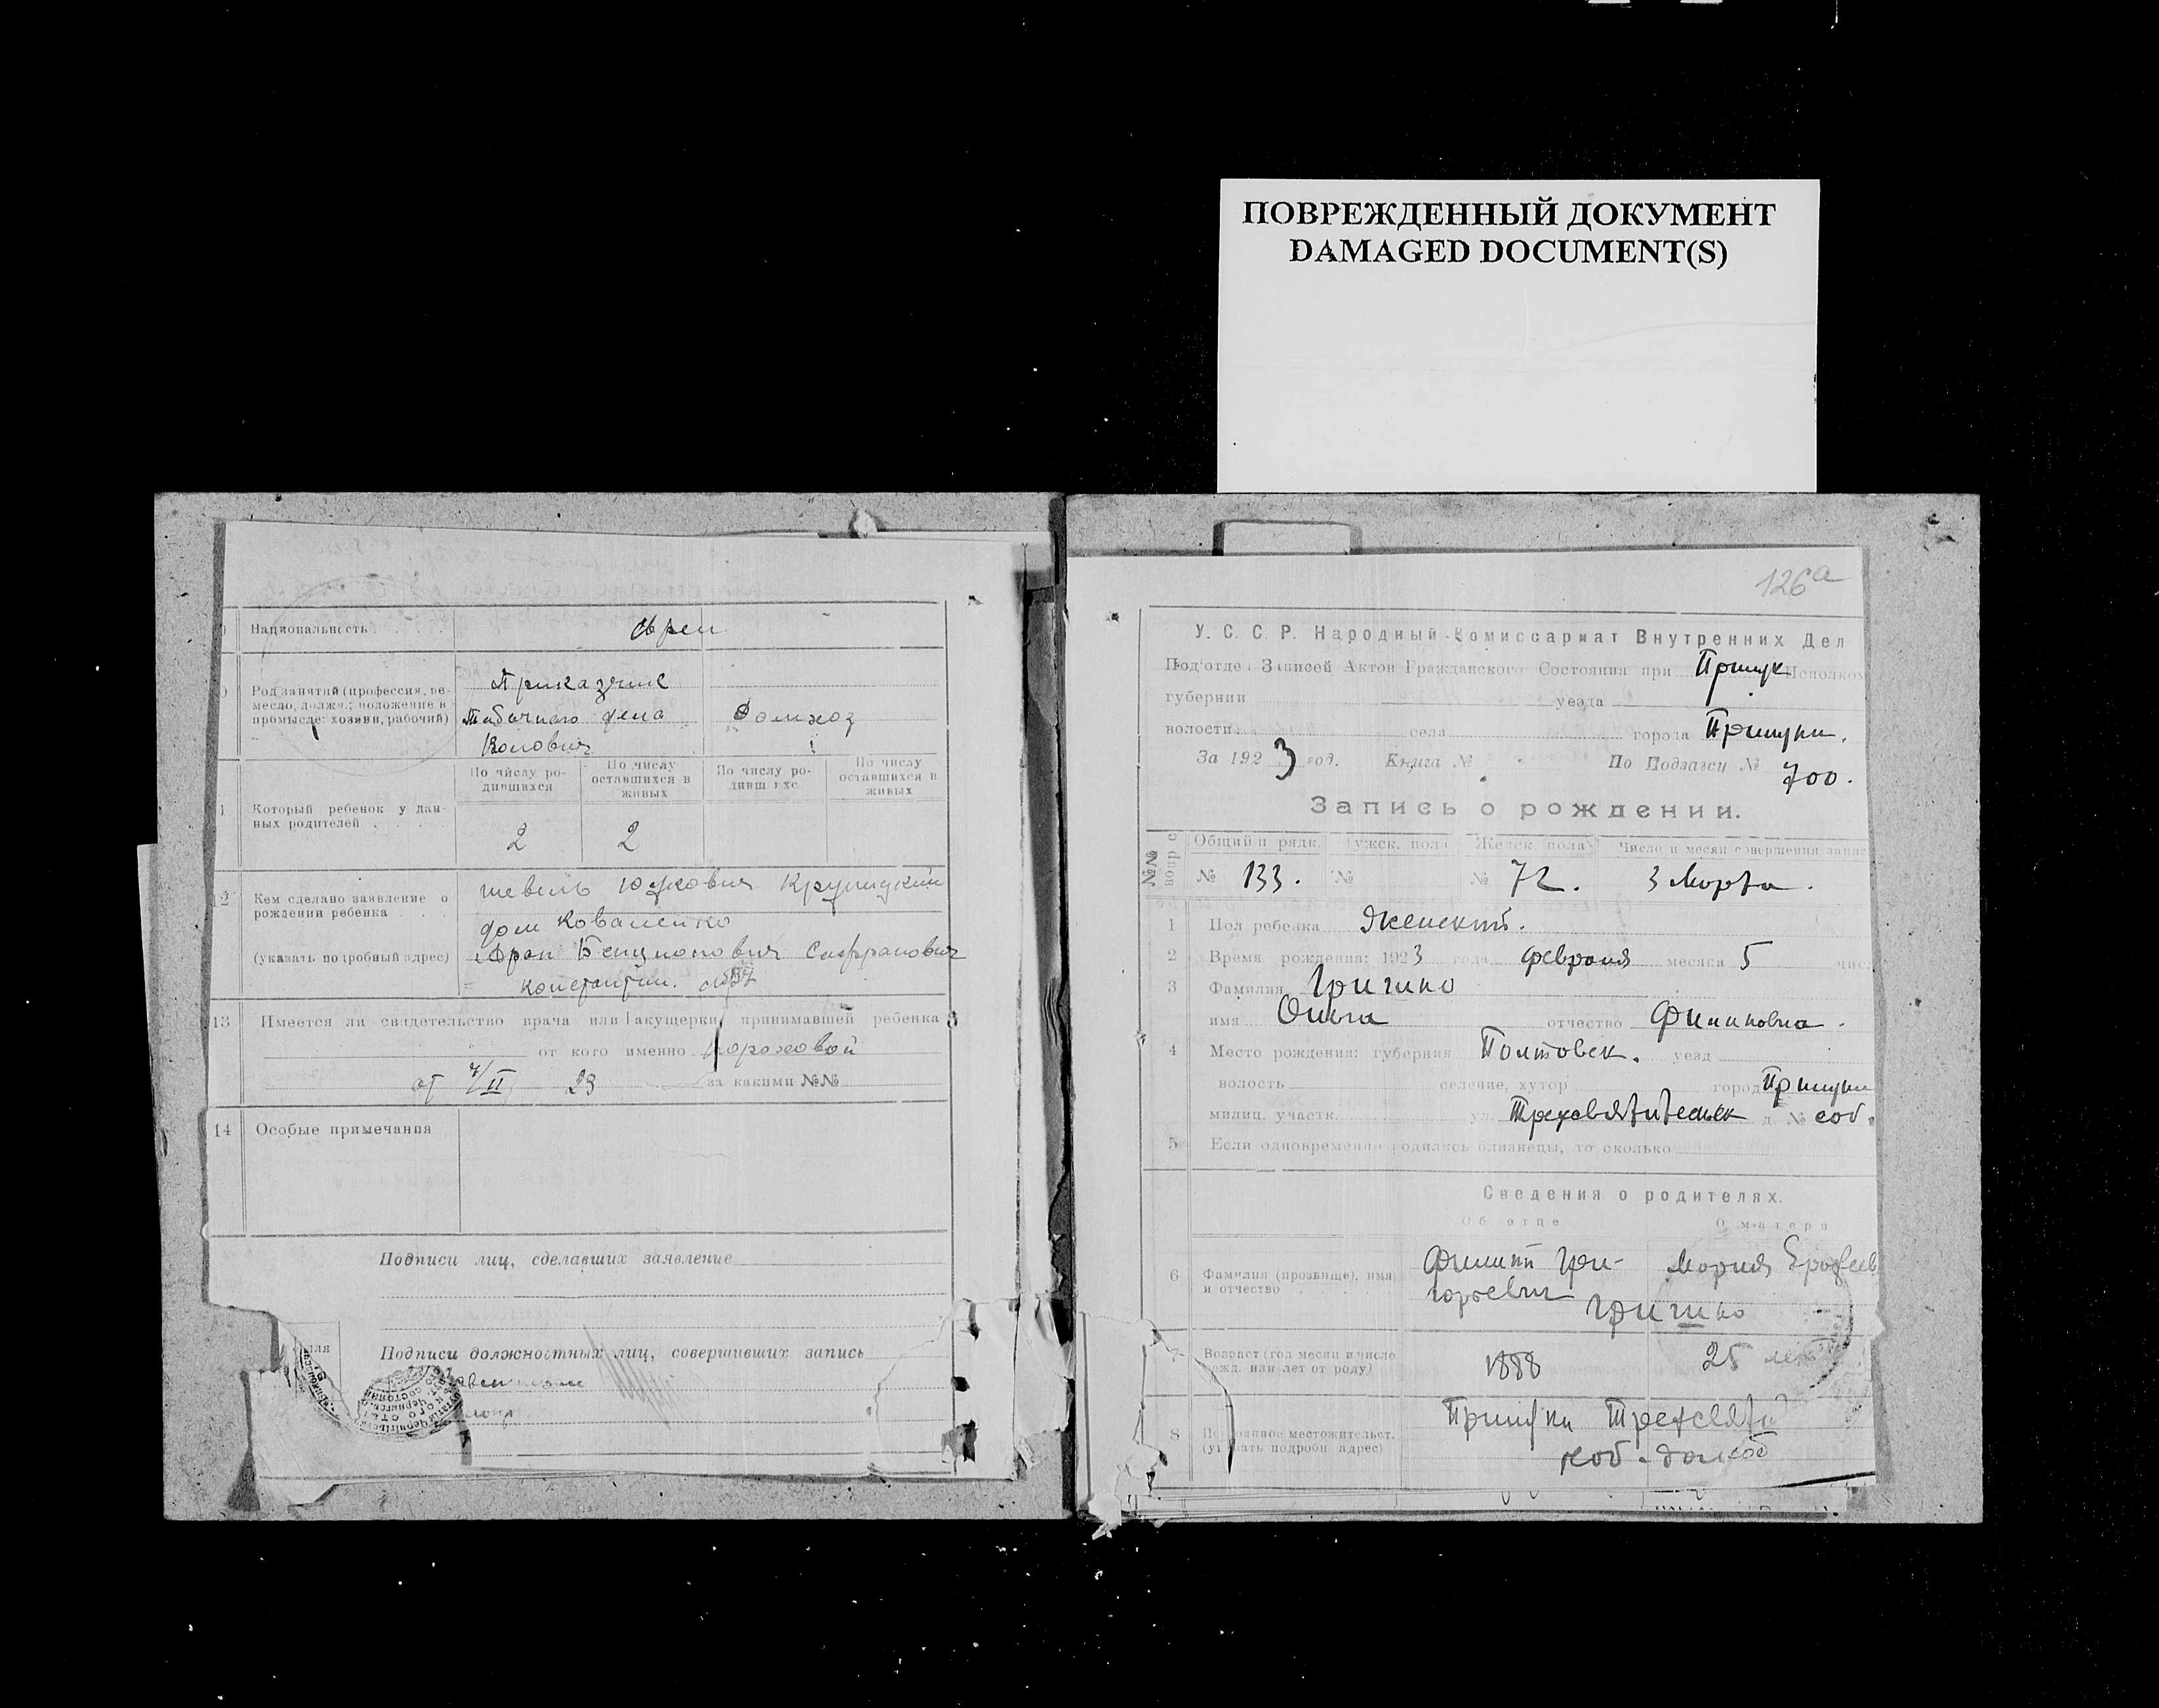 ПОВРЕЖДЕННЫЙ ДОКУМЕНТ
DAMAGED DOCUMENT(S)
Национальность
евреи
Род занятий (профессия, ре-
месло, должн.; положение в
промысле: хозяин, рабочий)
Приказчик
Табачного дела
Домхоз
По числу ро-
дившихся
По числу
оставшихся в
живых
По числу ро-
дивш хс
По числу
оставшихся в
живых
Который ребенок у дан-
ных родителей
2 2
12
Кем сделано заявление о
рождении ребенка
(указать подробный адрес)
шевель Юдкович Крупицкий
дом Коваленко
Арон Бенционович Сафранович
константин.
13 Имеется ли свидетельство врача или акушерки, принимавшей ребенка
от кого именно
от 7/II 23 за какими №№
14 Особые примечания
Подписи лиц, сделавших заявление
Подписи должностных лиц, совершивших запись
126а
У. С. С. Р. Народный Комиссариат Внутренних Дел
Подотдел Записей Актов Гражданского Состояния при Прилук Исполком
губернии уезда
волости села города Прилуки.
За 1923 год. Книга № По Подзагсу № 700.
Запись о рождении.
№№
Общий п рядк. ужск. пола Женск пола Число и месяц совершения запис
№ 133. № № 72. 3 Марта.
1 Пол ребенка Женский.
2 Время рождения: 1923 года, февраля месяца 5 чис
3 Фамилия Гришко
имя Ольга отчество Филиповна.
4 Место рождения: губерния Полтовск. уезд
волость селение, хутор город Прилуки
милиц. участк. ул. Трехсвятительск д. № соб.
5 Если одновременно родились близнецы, то сколько
Сведения о родителях.
Об отце О матери
6 Фамилия (прозвище), имя
и отчество
Филипп Гри-
горьевич
Мария Ерофеев
Гришко
7 Возраст (год месяц и число
рожд. или лет от роду)
1888 25 лет
8 Постоянное местожительст.
(указать подробн адрес)
Прилуки Трехсвят
соб. дом